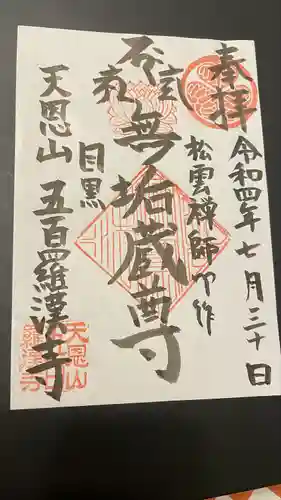 奉拝
令和四年七月三十日
松雲禅師了作
無垢蔵尊
目黒
天恩山五百羅漢寺
天恩山
羅漢寺